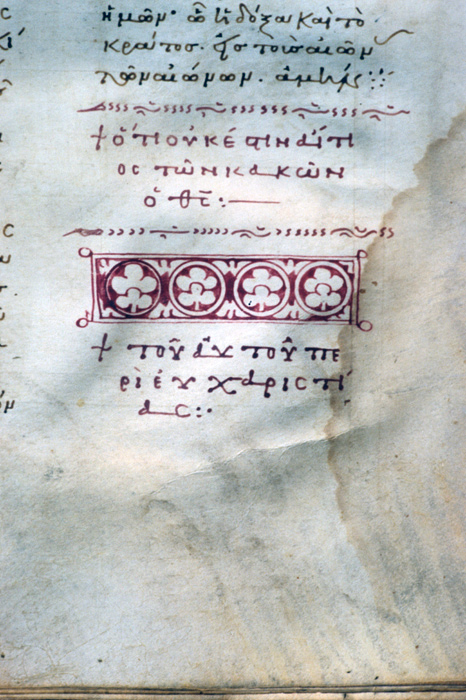 ἡμῶν· ὧ ἡ δόξα καὶ τὸ
κράτος· εἰς τοὺς αἰῶν
τῶν αἰώνων. ἀμήν:
+ ὅτι οὐκ ἔστιν αἴτι
ος τῶν κακῶν
ὁ θς:—
+ τοῦ αυτοῦ πε
ρὶ εὐχαριστί
ας:·